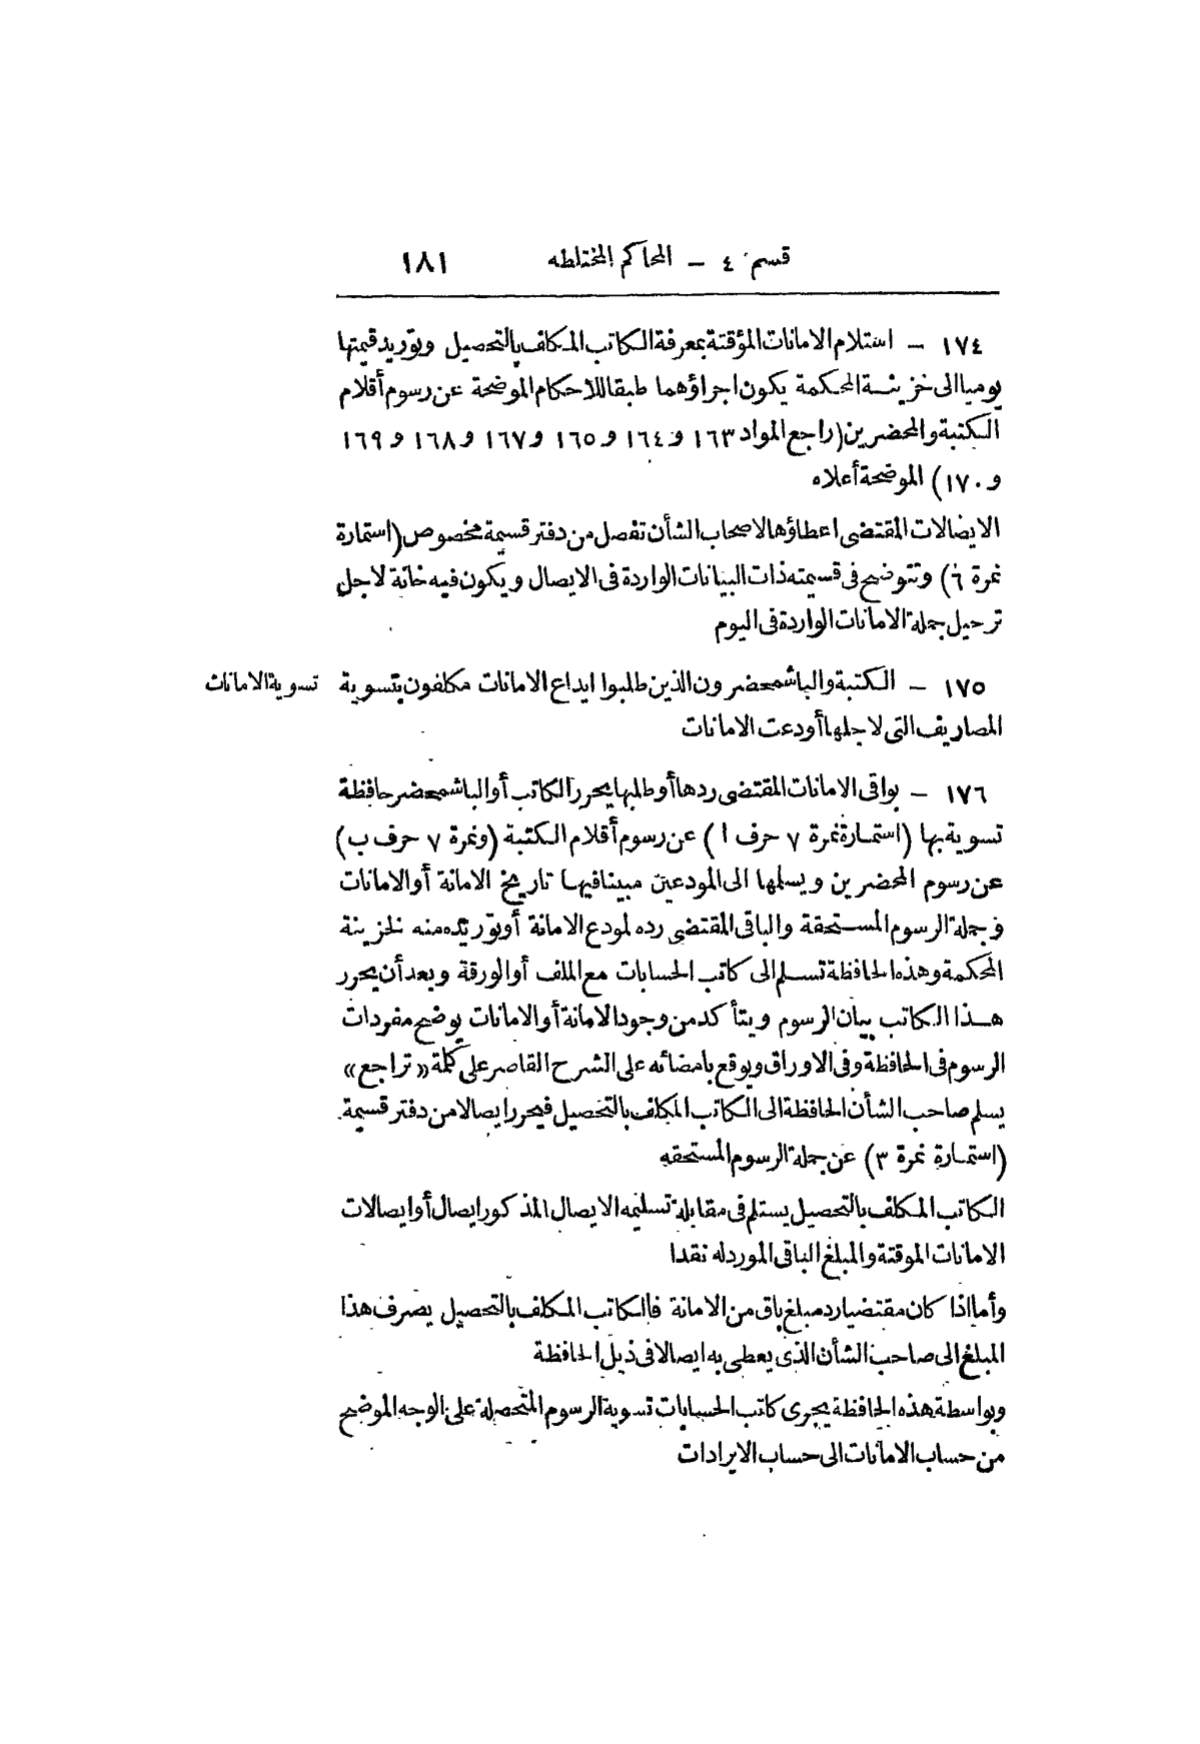 قسم ٤ – المحاكم المختلطه ١٨١
١٧٤ – استلام الامانات المؤقتة بمعرفة الكاتب المكلف بالتحصيل وتوريد قيمتها
يوميا الى خزينة المحكمة يكون اجراؤهما طبقا للاحكام الموضحة عن رسوم أقلام
الكتبة والمحضرين (راجع المواد ١٦٣ و ١٦٤ و ١٦٥ و ١٦٧ و ١٦٨ و ١٦٩
و ١٧٠) الموضحة أعلاه
الايصالات المقتضى اعطاؤها لاصحاب الشأن تفصل من دفتر قسيمة مخصوص (استمارة
نمرة ٦) وتتوضح فى قسيمته ذات البيانات الواردة فى الايصال ويكون فيه خانة لاجل
ترحيل جملة الامانات الواردة فى اليوم
١٧٥ – الكتبة والباشمحضرون الذين طلبوا ايداع الامانات مكلفون بتسوية
تسوية الامانات
المصاريف التى لاجلها أودعت الامانات
١٧٦ – بواقى الامانات المقتضى ردها أو طلبها يحرر الكاتب أو الباشمحضر حافظة
تسوية بها (استمارة نمرة ٧ حرف ا) عن رسوم أقلام الكتبة (ونمرة ٧ حرف ب)
عن رسوم المحضرين ويسلمها الى المودعين مبينا فيها تاريخ الامانة أو الامانات
وجملة الرسوم المستحقة والباقى المقتضى رده لمودع الامانة أو توريده منه لخزينة
المحكمة وهذه الحافظة تسلم الى كاتب الحسابات مع الملف أو الورقة وبعد أن يحرر
هذا الكاتب بيان الرسوم ويتأكد من وجود الامانة أو الامانات يوضح مفردات
الرسوم فى الحافظة وفى الاوراق ويوقع بامضائه على الشرح القاصر على كلمة «تراجع»
يسلم صاحب الشأن الحافظة الى الكاتب المكلف بالتحصيل فيحرر ايصالا من دفتر قسيمة
(استمارة نمرة ٣) عن جملة الرسوم المستحقه
الكاتب المكلف بالتحصيل يستلم فى مقابلة تسليمه الايصال المذكور ايصال أو ايصالات
الامانات الموقتة والمبلغ الباقى المورد له نقدا
وأما اذا كان مقتضيا رد مبلغ باق من الامانة فالكاتب المكلف بالتحصيل يصرف هذا
المبلغ الى صاحب الشأن الذى يعطى به ايصالا فى ذيل الحافظة
وبواسطة هذه الحافظة يجرى كاتب الحسابات تسوية الرسوم المتحصلة على الوجه الموضح
من حساب الامانات الى حساب الايرادات